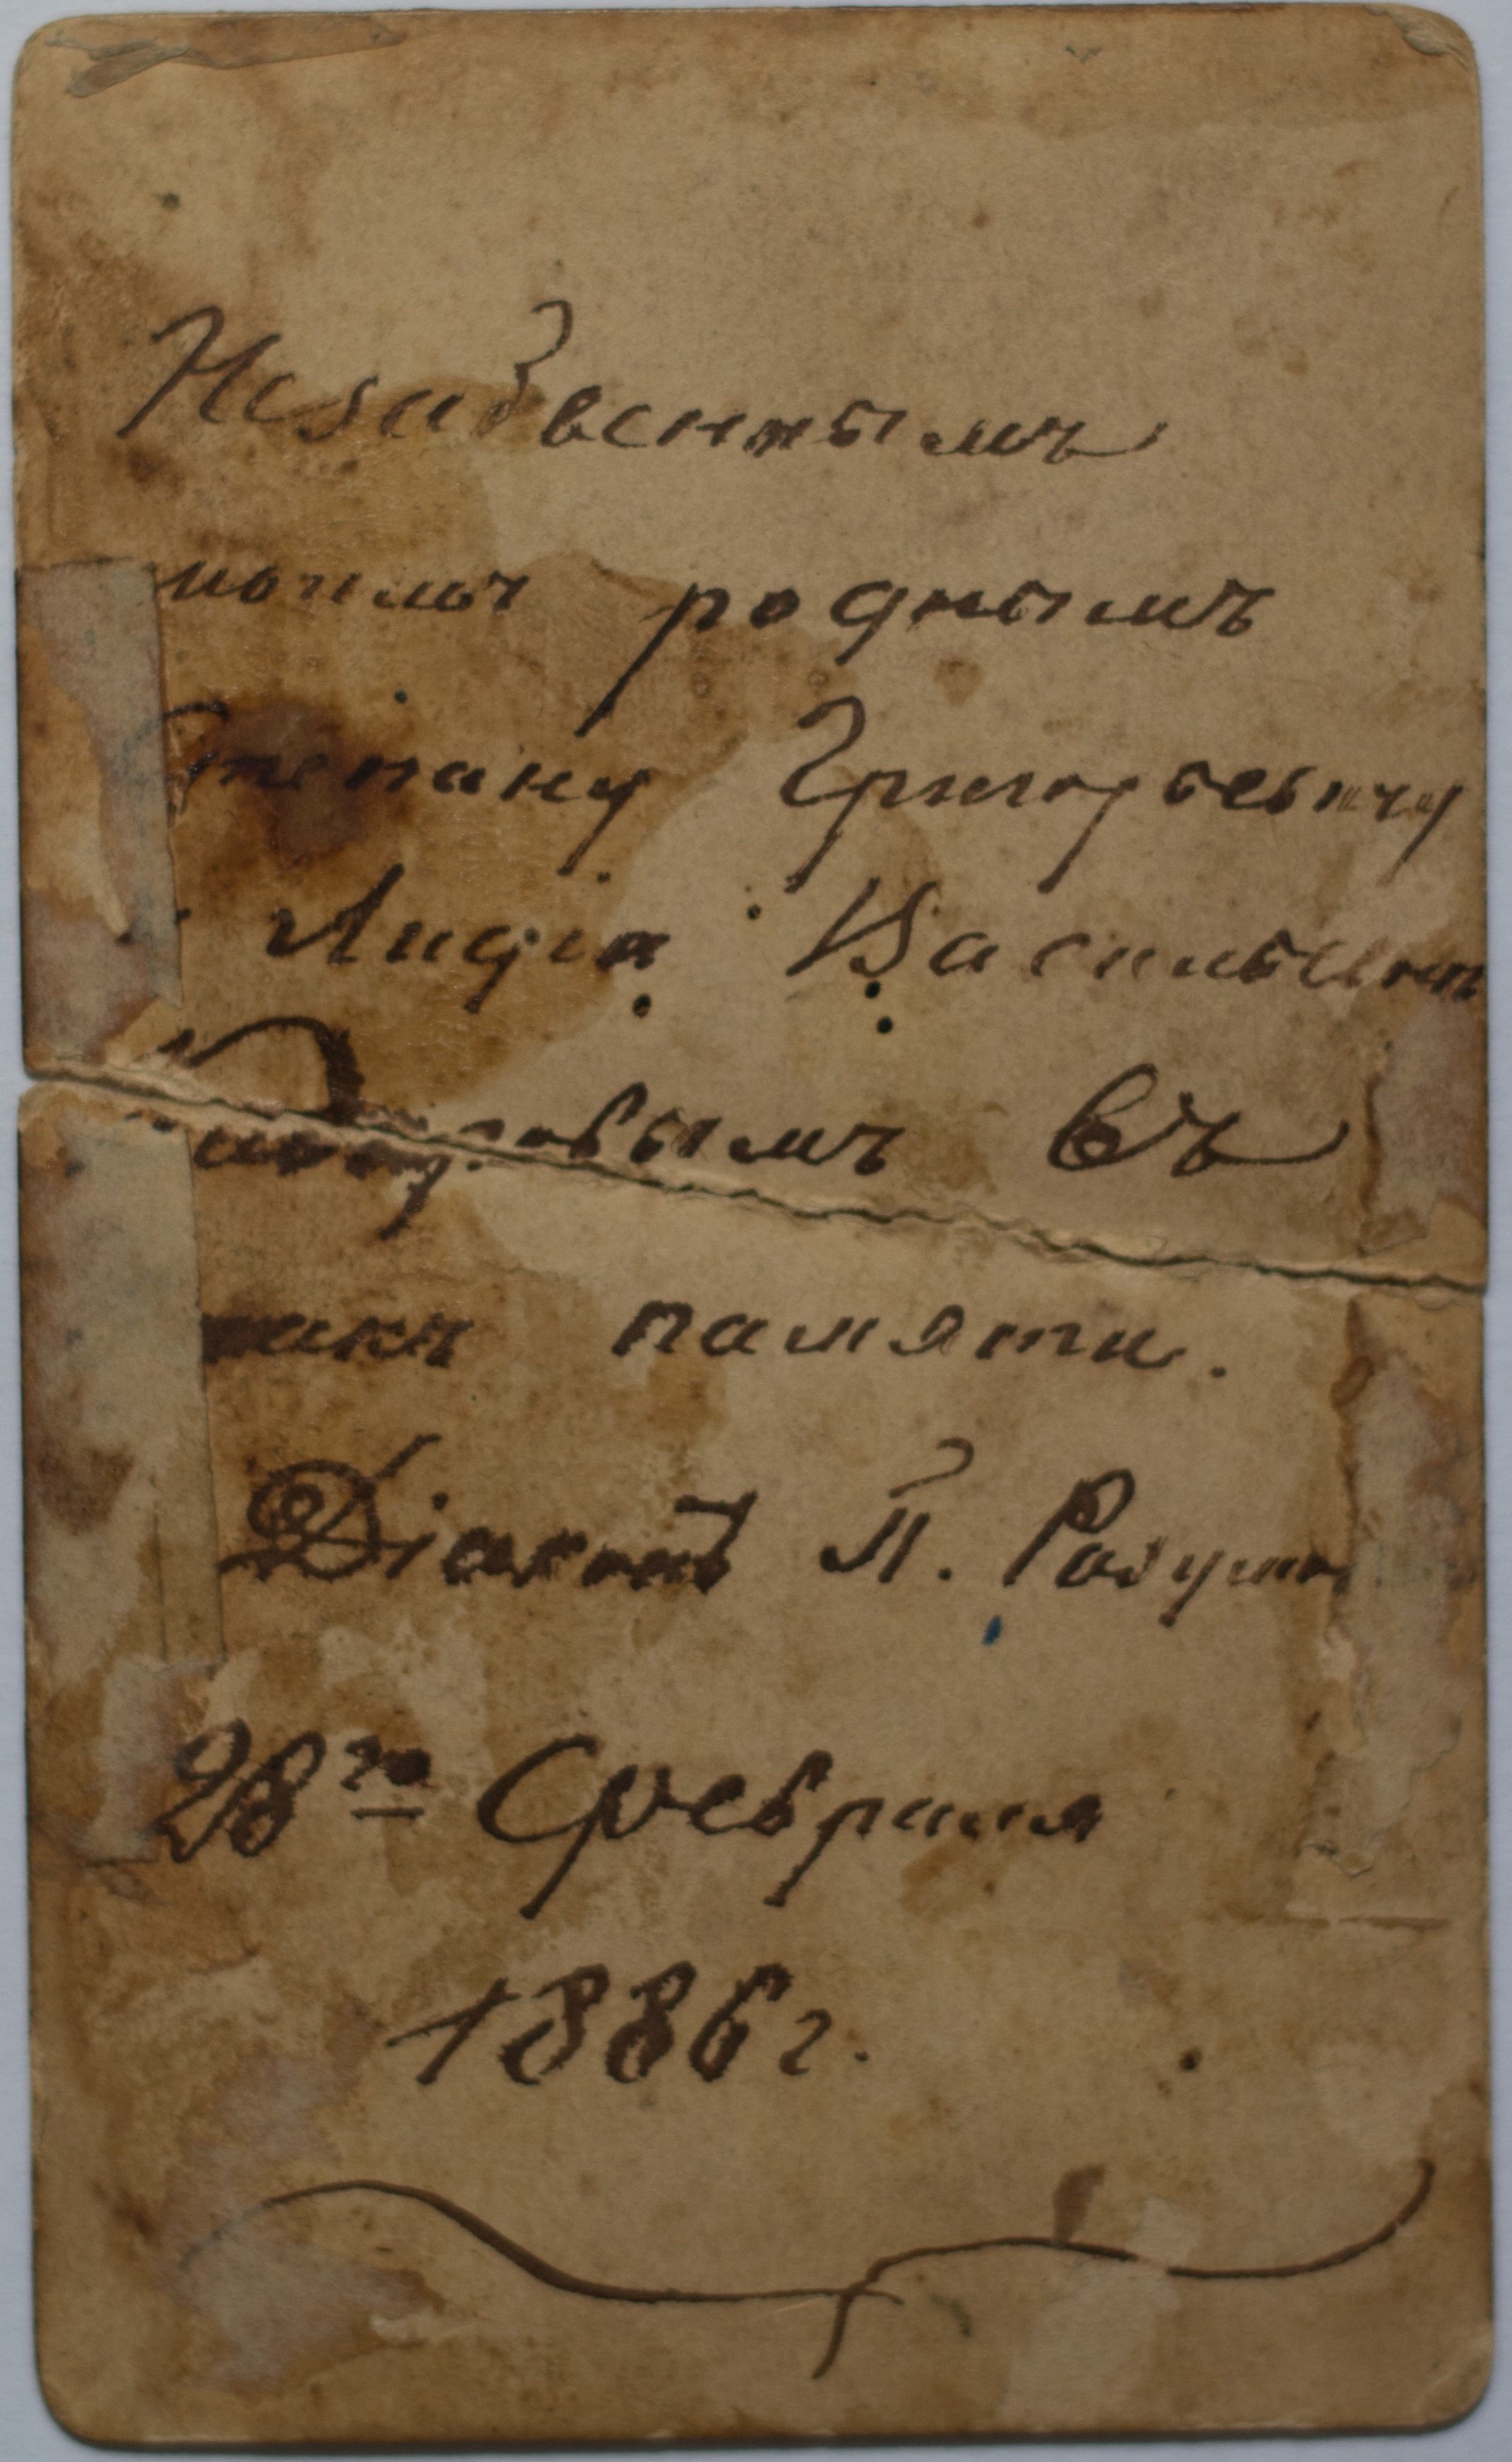 Незабвеннымъ
моимъ роднымъ
Степану Григорьевичу
Лидіи Васильевн
въ
знакъ памяти.
Діаконъ П.
28го Февраля
1886 г.